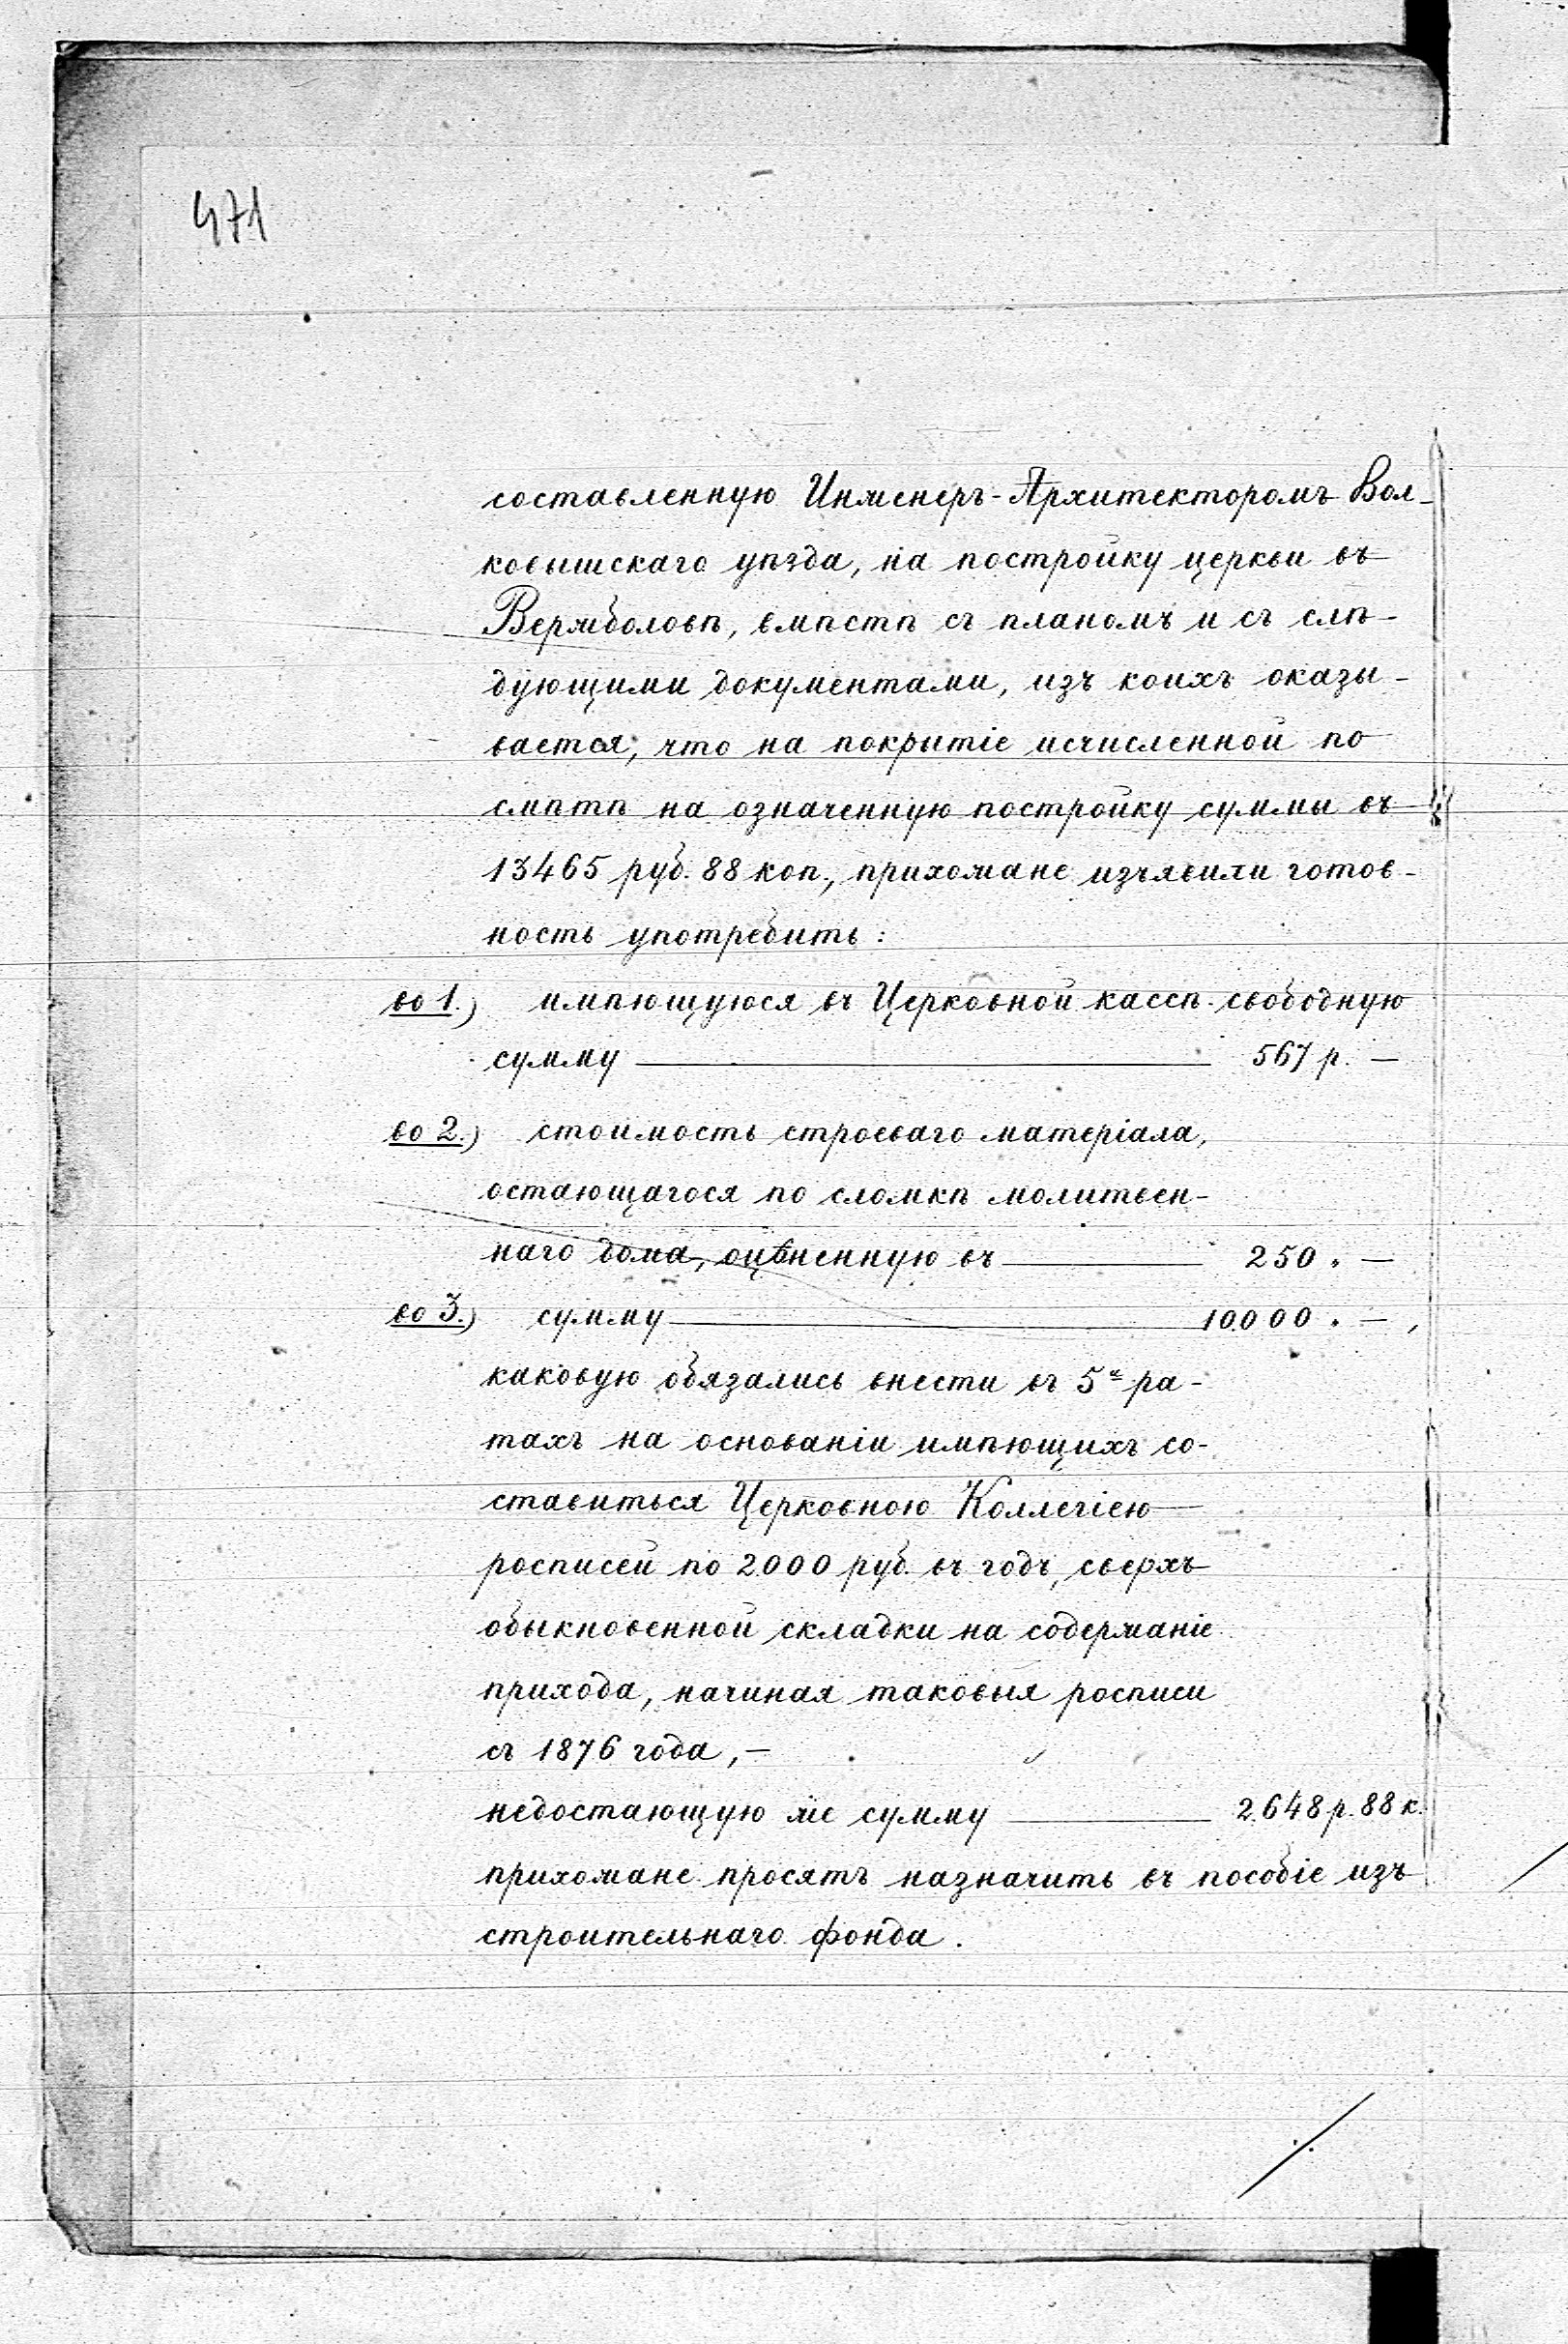 471
составленную Инженеръ-Архитекторомъ Вол-
ковышскаго уѣзда, на постройку церкви въ
Вержболовѣ, вмѣстѣ съ планомъ и съ слѣ-
дующими документами, изъ коихъ оказы-
вается, что на покрытіе исчисленной по
смѣтѣ на означенную постройку суммы въ
13465 руб. 88 коп., прихожане изъявили готов-
ность употребить:
во 1.) имѣющуюся въ Церковной кассѣ свободную
сумму — 567 р. —
во 2.) стоимость строеваго матеріала,
остающагося по сломкѣ молитвен-
наго дома, оцѣненную въ — 250 . —
во 3.) сумму — 10.000 . — ,
каковую обязались внести въ 5и ра-
тахъ на основаніи имѣющихъ со-
ставиться Церковною Коллегіею
росписей по 2000 руб. въ годъ, сверхъ
обыкновенной складки на содержаніе
прихода, начиная таковыя росписи
съ 1876 года, —
недостающую же сумму — 2648 р. 88 к.
прихожане просятъ назначить въ пособіе изъ
строительнаго фонда.